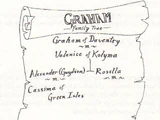 GRAHAM
Family Tree
Graham of Daventry
~m~
Valanice of Kolyma
Alexander (Gwydion) — Rosella
~m~
Cassima of
Green Isles